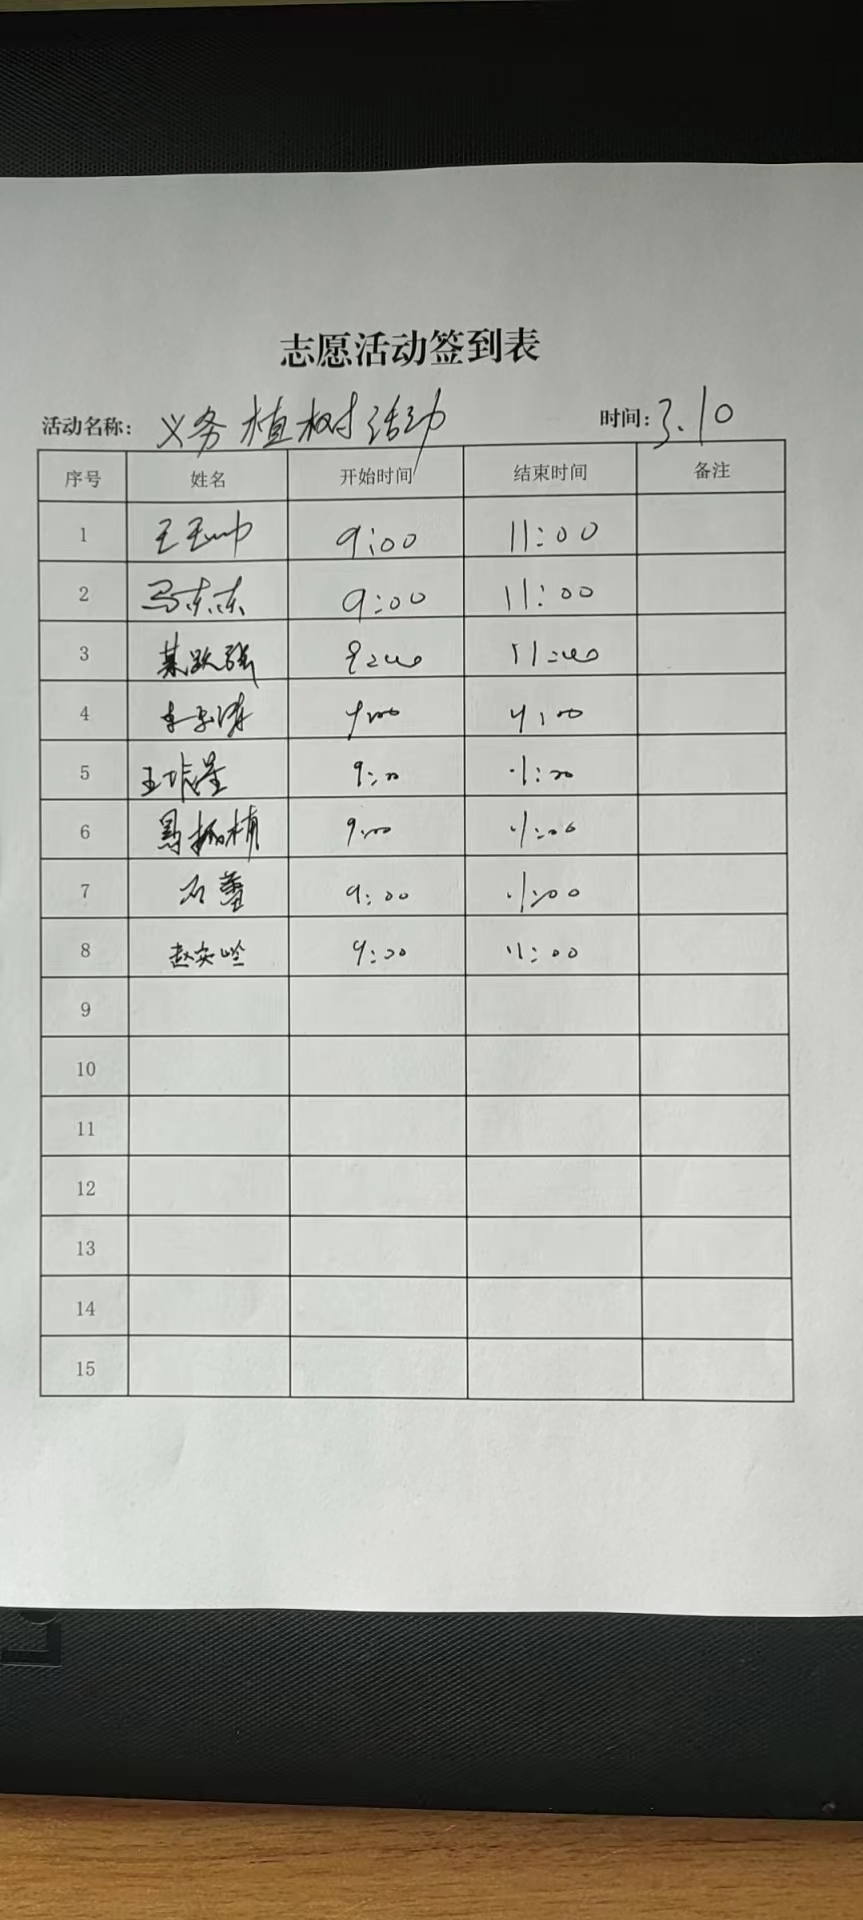 志愿活动签到表
活动名称: 义务植树活动 时间: 3.10
序号 姓名 开始时间 结束时间 备注
1 9:00 11:00
2 马东东 9:00 11:00
3 11:00
4 9:00 11:00
5 9:00 11:00
6 9:00 11:00
7 石蕾 9:00 11:00
8 9:00 11:00
9
10
11
12
13
14
15